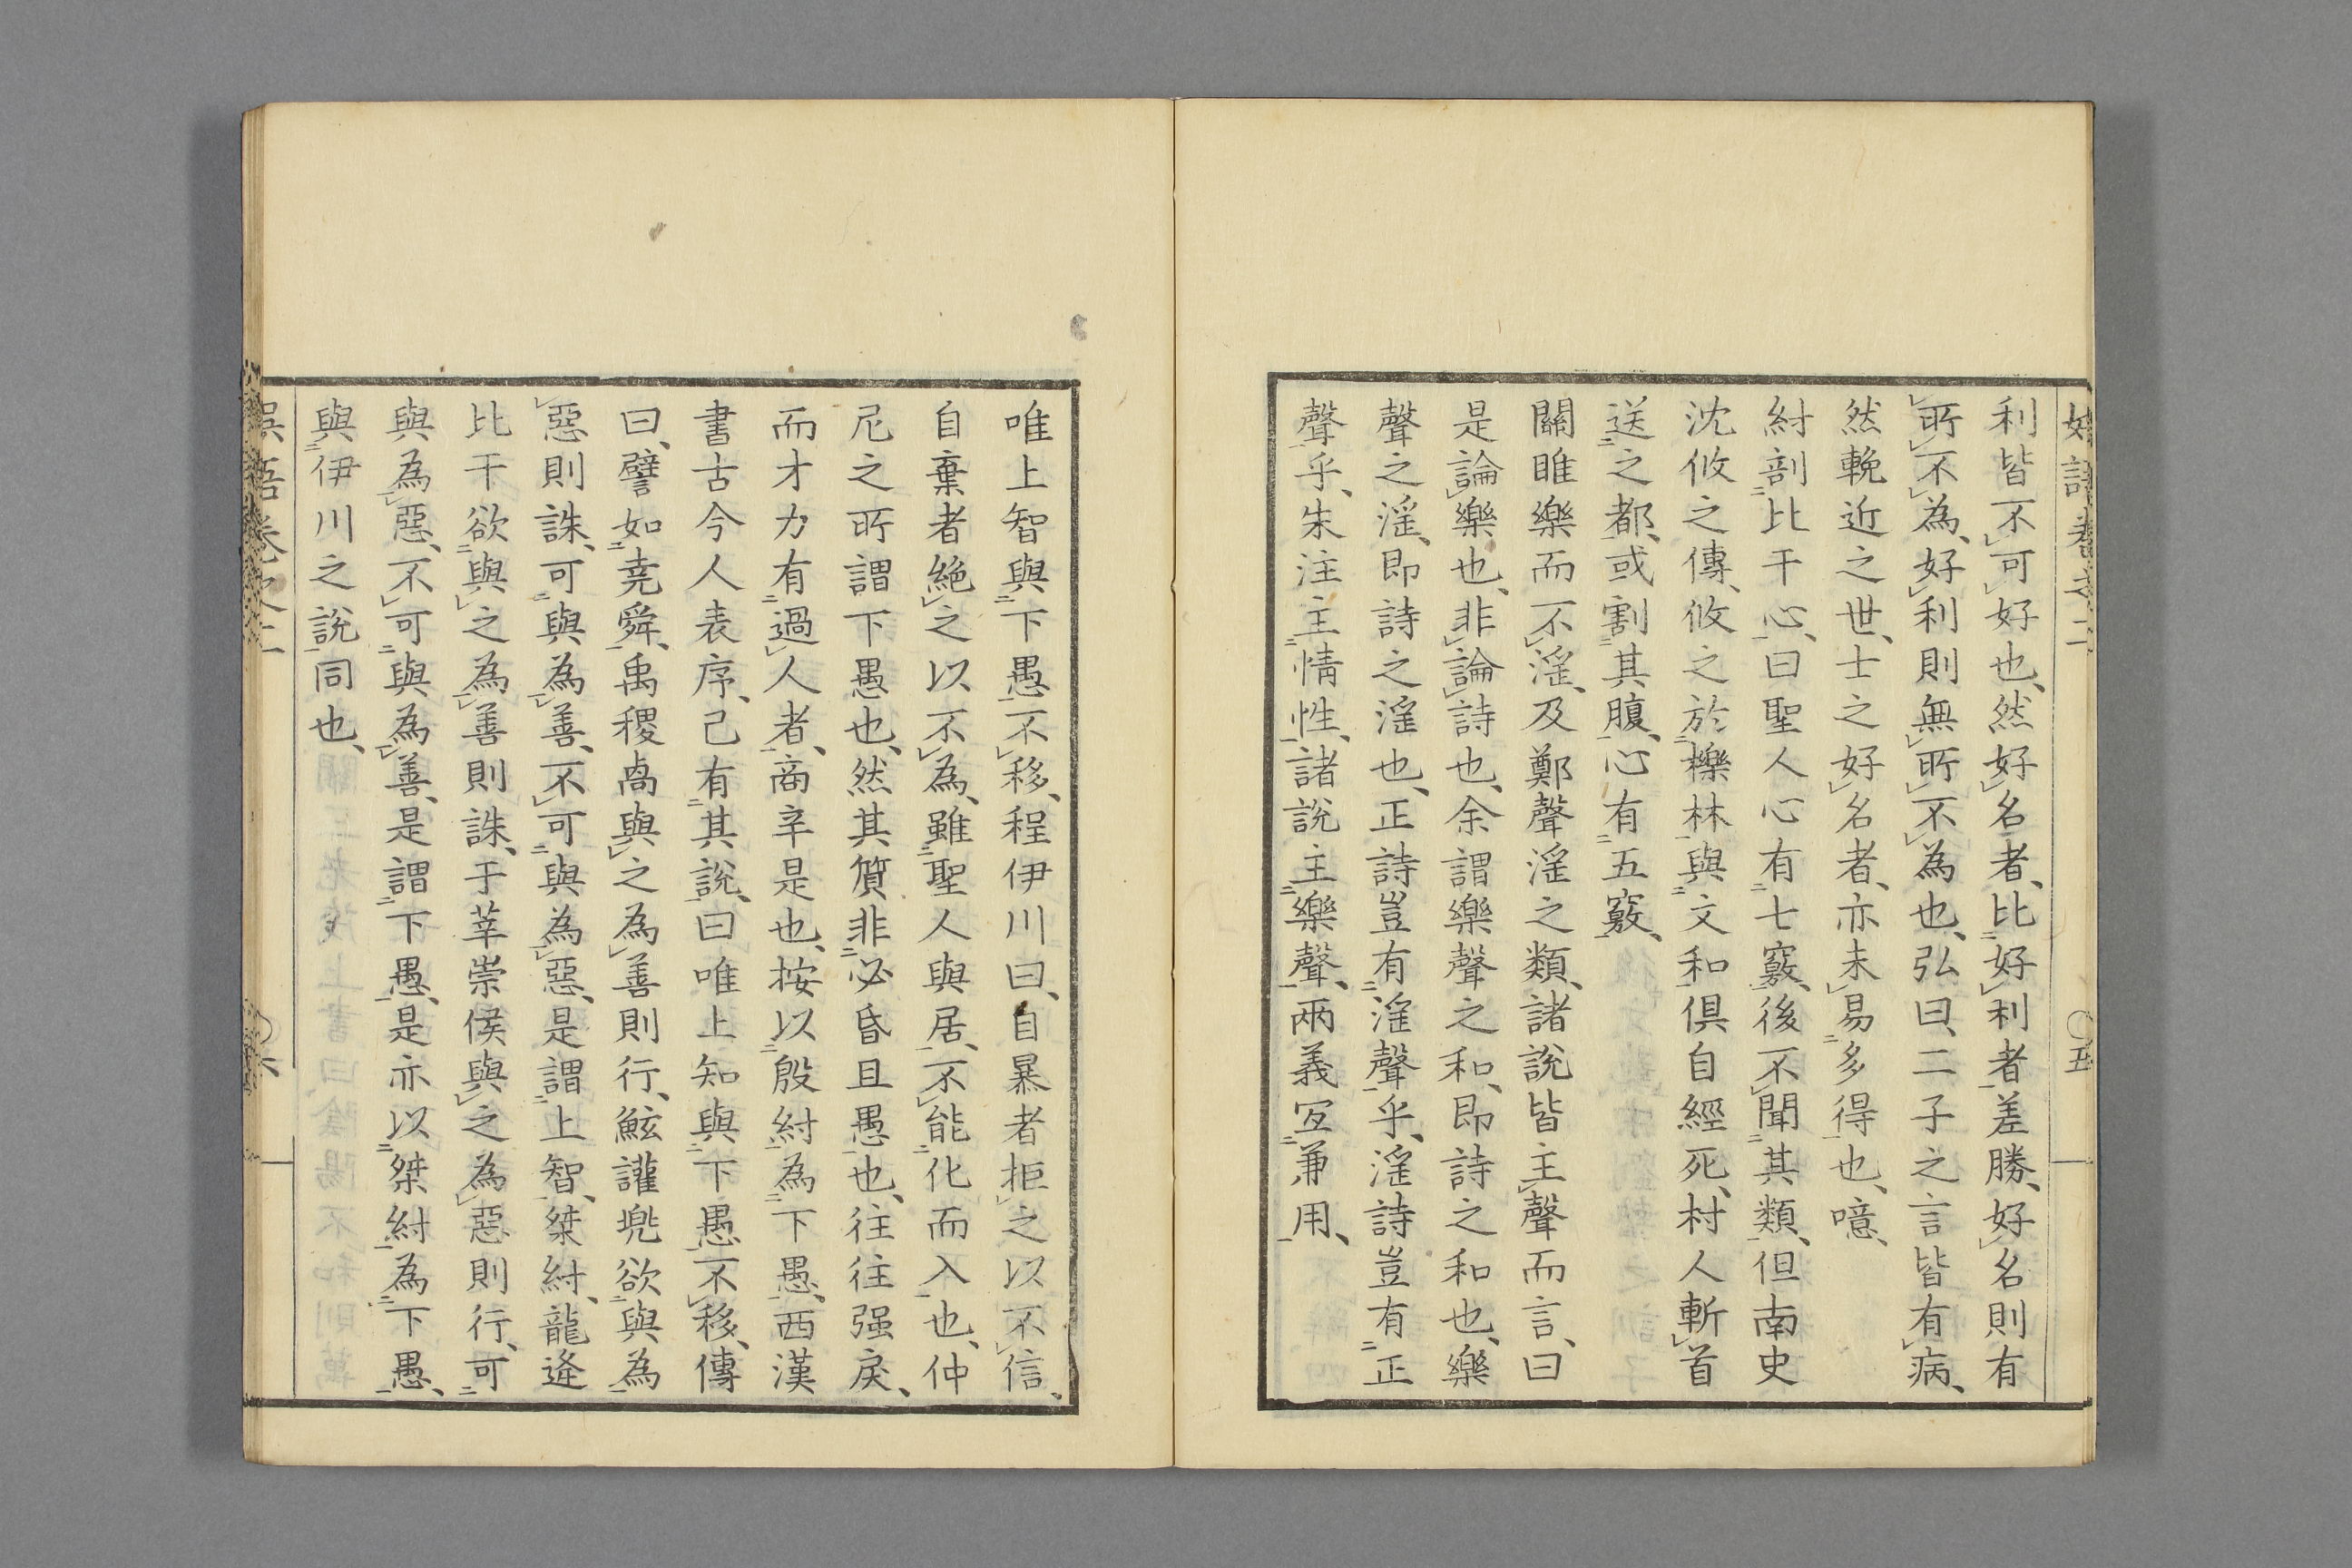 利皆不可好也、然好名者、比好利者差勝、好名則有
所不為、好利則無所不為也、弘曰、二子之言皆有病、
然輓近之世、士之好名者、亦未易多得也、噫、
紂剖比干心、曰聖人心有七竅、後不聞其類、但南史
沈攸之傳、攸之於櫟林與文和俱自經死、村人斬首
送之都、或割其腹、心有五竅、
關雎樂而不淫、及鄭聲淫之類、諸說皆主聲而言、曰
是論樂也、非論詩也、余謂樂聲之和、即詩之和也、樂
聲之淫、即詩之淫也、正詩豈有淫聲乎、淫詩豈有正
聲乎、朱注主情性、諸說主樂聲、兩義宜兼用、
唯上智與下愚不移、程伊川曰、自暴者拒之以不信、
自棄者絶之以不為、雖聖人與居、不能化而入也、仲
尼之所謂下愚也、然其質非必昏且愚也、往往强戾、
而才力有過人者、商辛是也、按以殷紂為下愚、西漢
書古今人表序、己有其說、曰唯上知與下愚不移、傳
曰、譬如堯舜、禹稷卨與之為善則行、鮌讙兠欲與為
惡則誅、可與為善、不可與為惡、是謂上智、桀紂、龍逄
比干欲與之為善則誅、于莘崇侯與之為惡則行、可
與為惡、不可與為善、是謂下愚、是亦以桀紂為下愚、
與伊川之說同也、